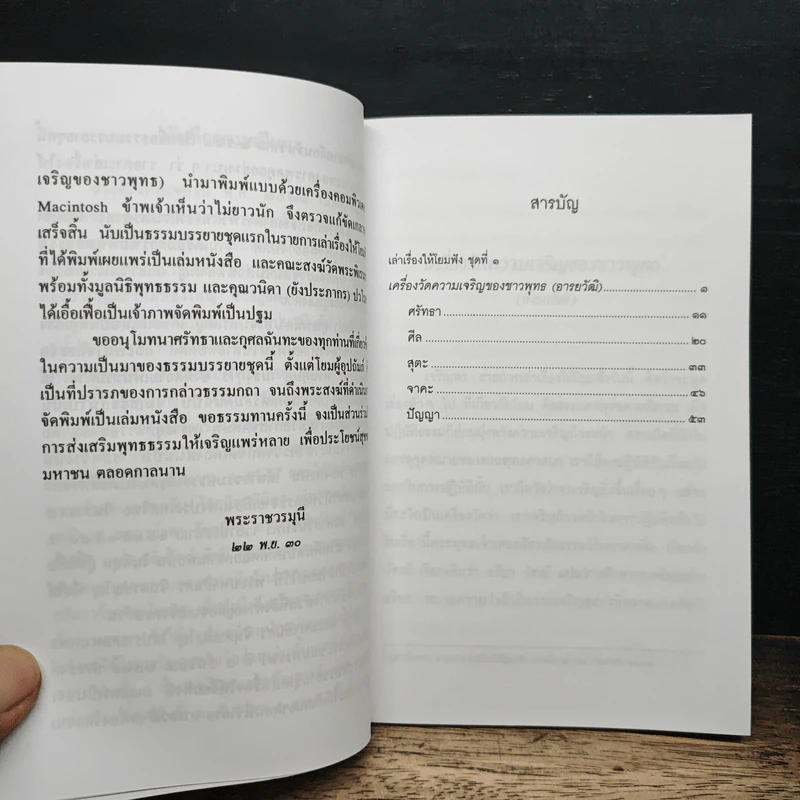 เจริญของชาวพุทธ) นำมาพิมพ์แบบด้วยเครื่องคอมพิวเตอ
Macintosh ข้าพเจ้าเห็นว่าไม่ยาวนัก จึงตรวจแก้ขัดเกลา
เสร็จสิ้น นับเป็นธรรมบรรยายชุดแรกในรายการเล่าเรื่องให้โยม
ที่ได้พิมพ์เผยแพร่เป็นเล่มหนังสือ และคณะสงฆ์วัดพระพิเรน
พร้อมทั้งมูลนิธิพุทธธรรม และคุณวนิดา (ยังประภากร)
ได้เอื้อเฟื้อเป็นเจ้าภาพจัดพิมพ์เป็นปฐม
ขออนุโมทนาศรัทธาและกุศลฉันทะของทุกท่านที่เกี่ยวข้
ในความเป็นมาของธรรมบรรยายชุดนี้ ตั้งแต่โยมผู้อุปถัมภ์
เป็นที่ปรารภของการกล่าวธรรมกถา จนถึงพระสงฆ์ที่ดำเนิน
จัดพิมพ์เป็นเล่มหนังสือ ขอธรรมทานครั้งนี้ จงเป็นส่วนร่วม
การส่งเสริมพุทธธรรมให้เจริญแพร่หลาย เพื่อประโยชน์สุข
มหาชน ตลอดกาลนาน
พระราชวรมุนี
๒๒ พ.ย. ๓๐
สารบัญ
เล่าเรื่องให้โยมฟัง ชุดที่ ๑
เครื่องวัดความเจริญของชาวพุทธ (อารยวัฒิ)..........๑
ศรัทธา..........๑๑
ศีล..........๒๐
สุตะ..........๓๓
จาคะ..........๔๖
ปัญญา..........๕๓